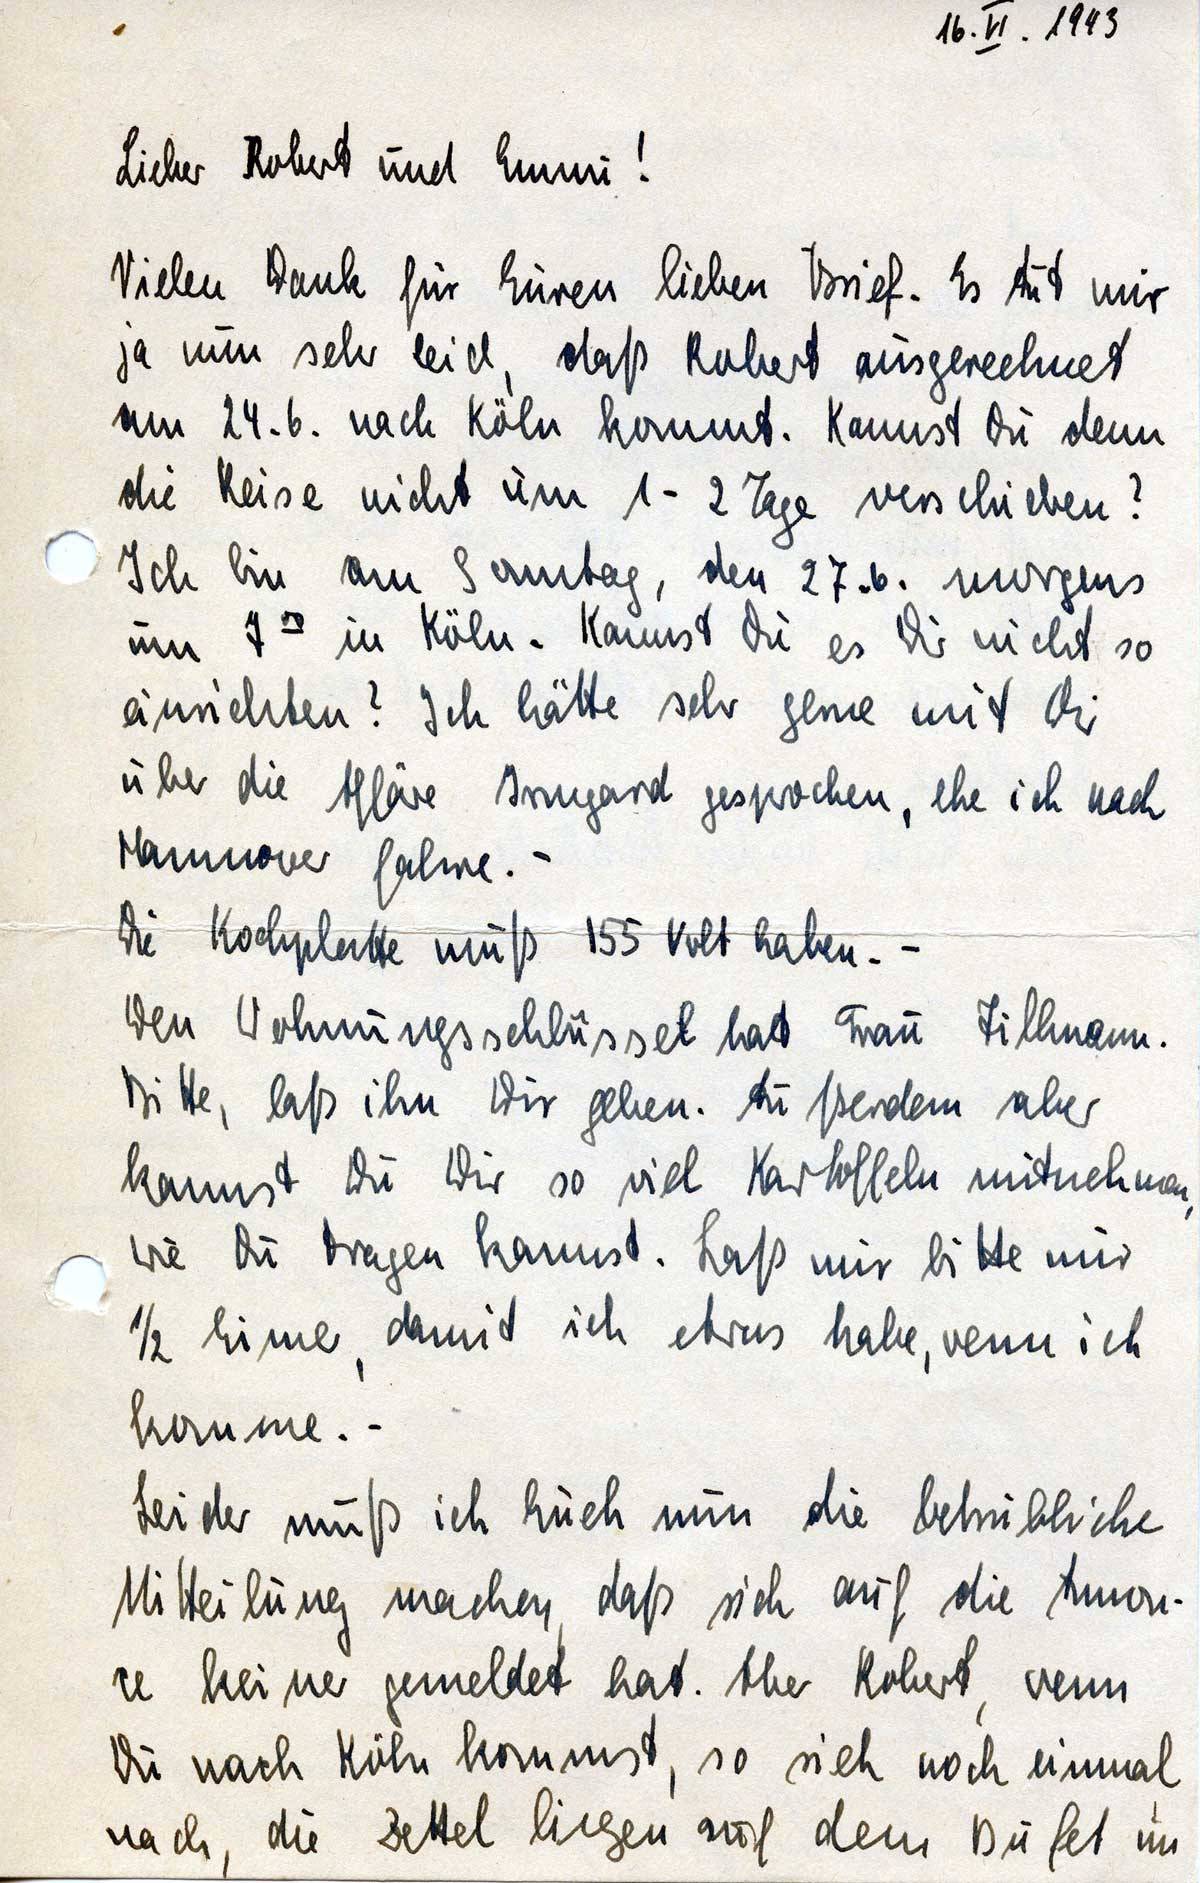 16. VI. 1943
Lieber Robert und Emmi!
Vielen Dank für Euren lieben Brief. Es tut mir
ja nun sehr leid, daß Robert ausgerechnet
am 24.6. nach Köln kommt. Kannst Du denn
die Reise nicht um 1-2 Tage verschieben?
Ich bin am Sonntag, den 27.6. morgens
um 7°° in Köln. Kannst Du es Dir nicht so
einrichten? Ich hätte sehr gerne mit Dir
über die Affäre Irmgard gesprochen, ehe ich nach
Hannover fahre. -
Die Kochplatte muß 155 Volt haben. -
Den Wohnungsschlüssel hat Frau Tillmann.
Bitte, laß ihn Dir geben. Außerdem aber
kannst Du Dir so viel Kartoffeln mitnehmen,
wie Du tragen kannst. Laß mir bitte nur
1/2 Eimer, damit ich etwas habe, wenn ich
komme. -
Leider muß ich Euch nun die betrübliche
Mitteilung machen, daß sich auf die Annon-
ce keiner gemeldet hat. Aber Robert, wenn
Du nach Köln kommst, so sieh noch einmal
nach, die Zettel liegen auf dem Bufet im